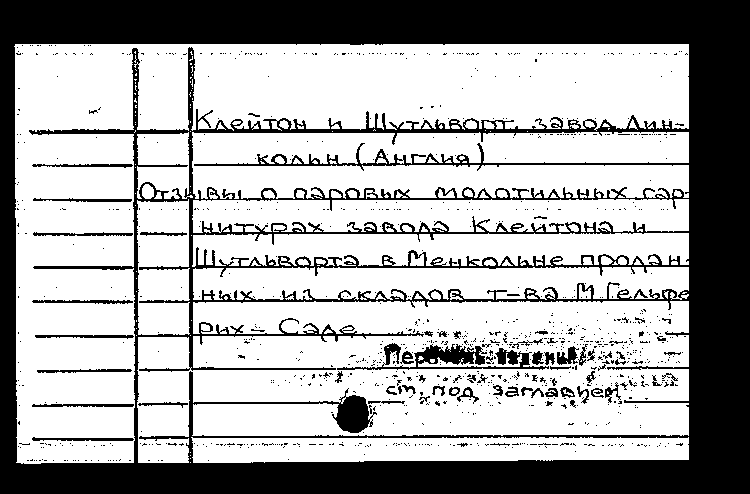 Клейтон и Шутльворт, завод Лин-
кольн (Англия).
Отзывы о паровых молотильных гар-
нитурах завода Клейтона и
Шутльворта в Менкольне продан-
ных из складов т-ва М. Гельфе
рих-Саде.
см. под заглавием